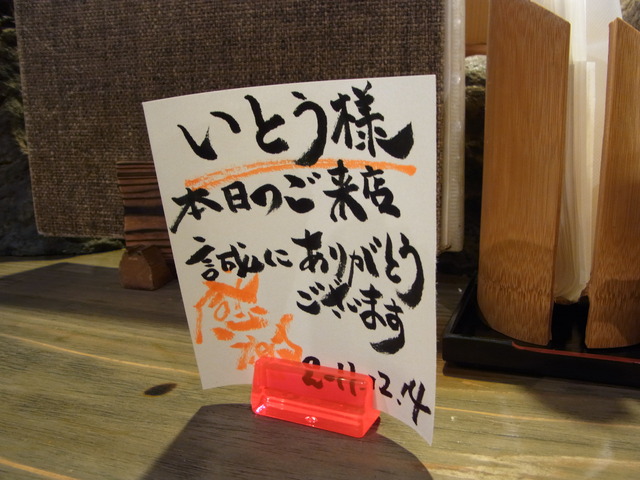 いとう様
本日のご来店
誠にありがとう
ございます